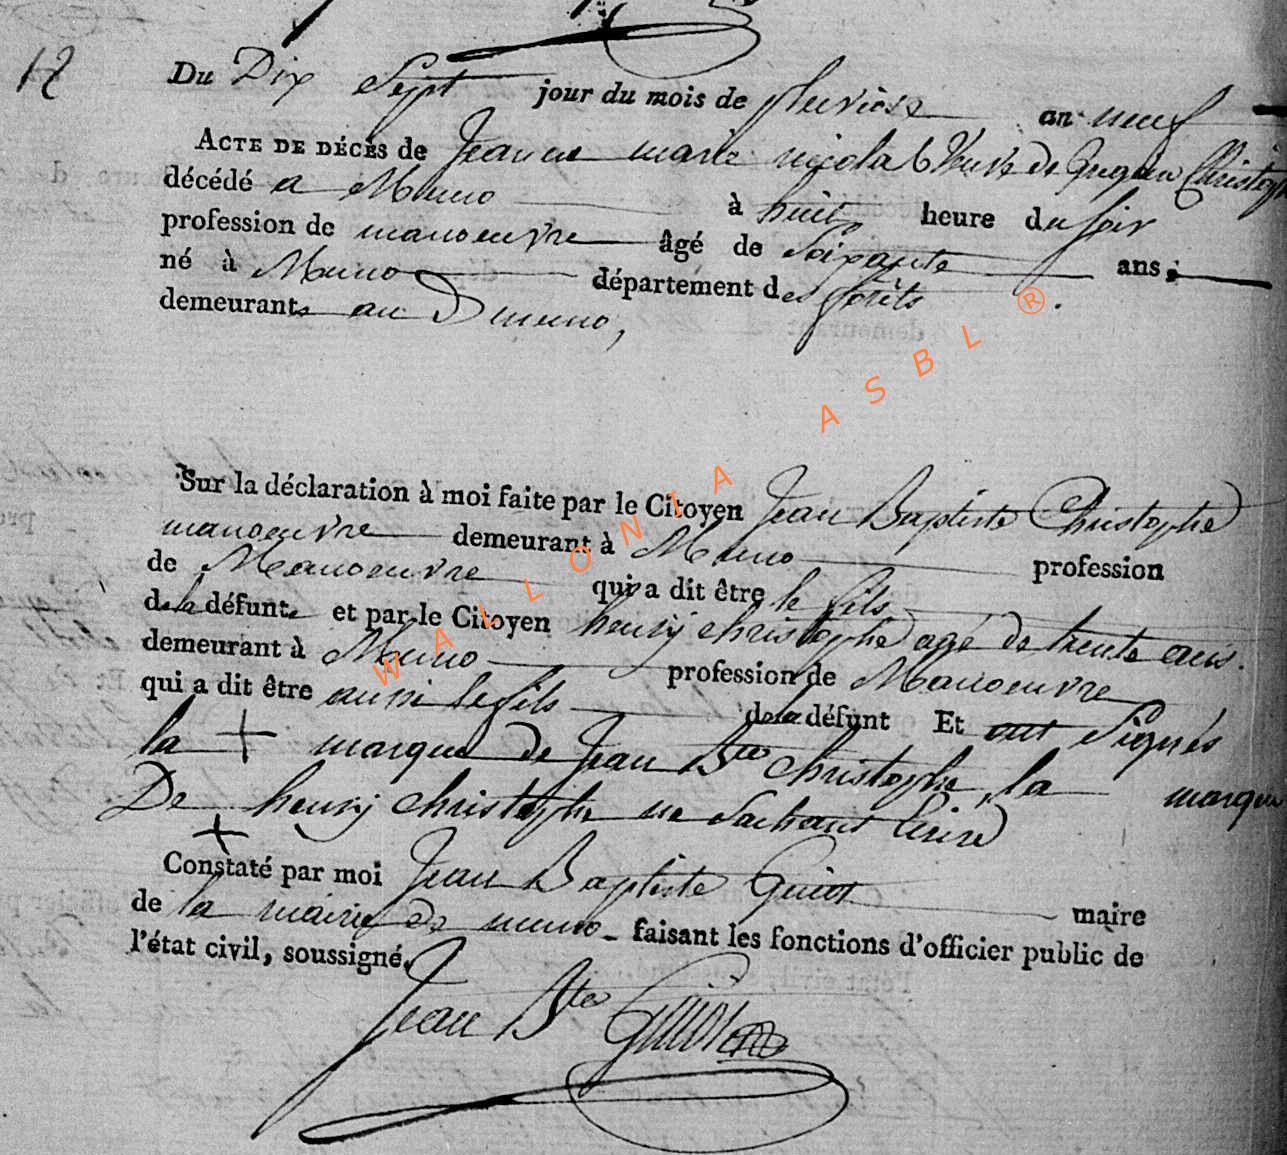 12
Du Dix Sept jour du mois de pluviose an neuf
ACTE DE DÉCÈS de Jeanne marie nicola Veuve de Christop
décédé a Muno à huit heure du soir
profession de manoeuvre âgé de Soixante ans.
né à Muno département des forêts.
demeurante au D muno,
Sur la déclaration à moi faite par le Citoyen Jean Baptiste Christophe
manoeuvre demeurant à Muno profession
de Manoeuvre qui a dit être le fils
dela défunte et par le Citoyen henry christophe agé de trente ans.
demeurant à Muno profession de Manoeuvre
qui a dit être aussi le fils dela défunt Et ont Signés
la + marque de Jean Bte christophe, la marque
De henry christophe ne Sachant Ecrire
+
Constaté par moi Jean Baptiste Guiot maire
de la mairie de muno faisant les fonctions d'officier public de
l'état civil, soussigné.
Jean Bte Guiot
WALLONIA ASBL ®